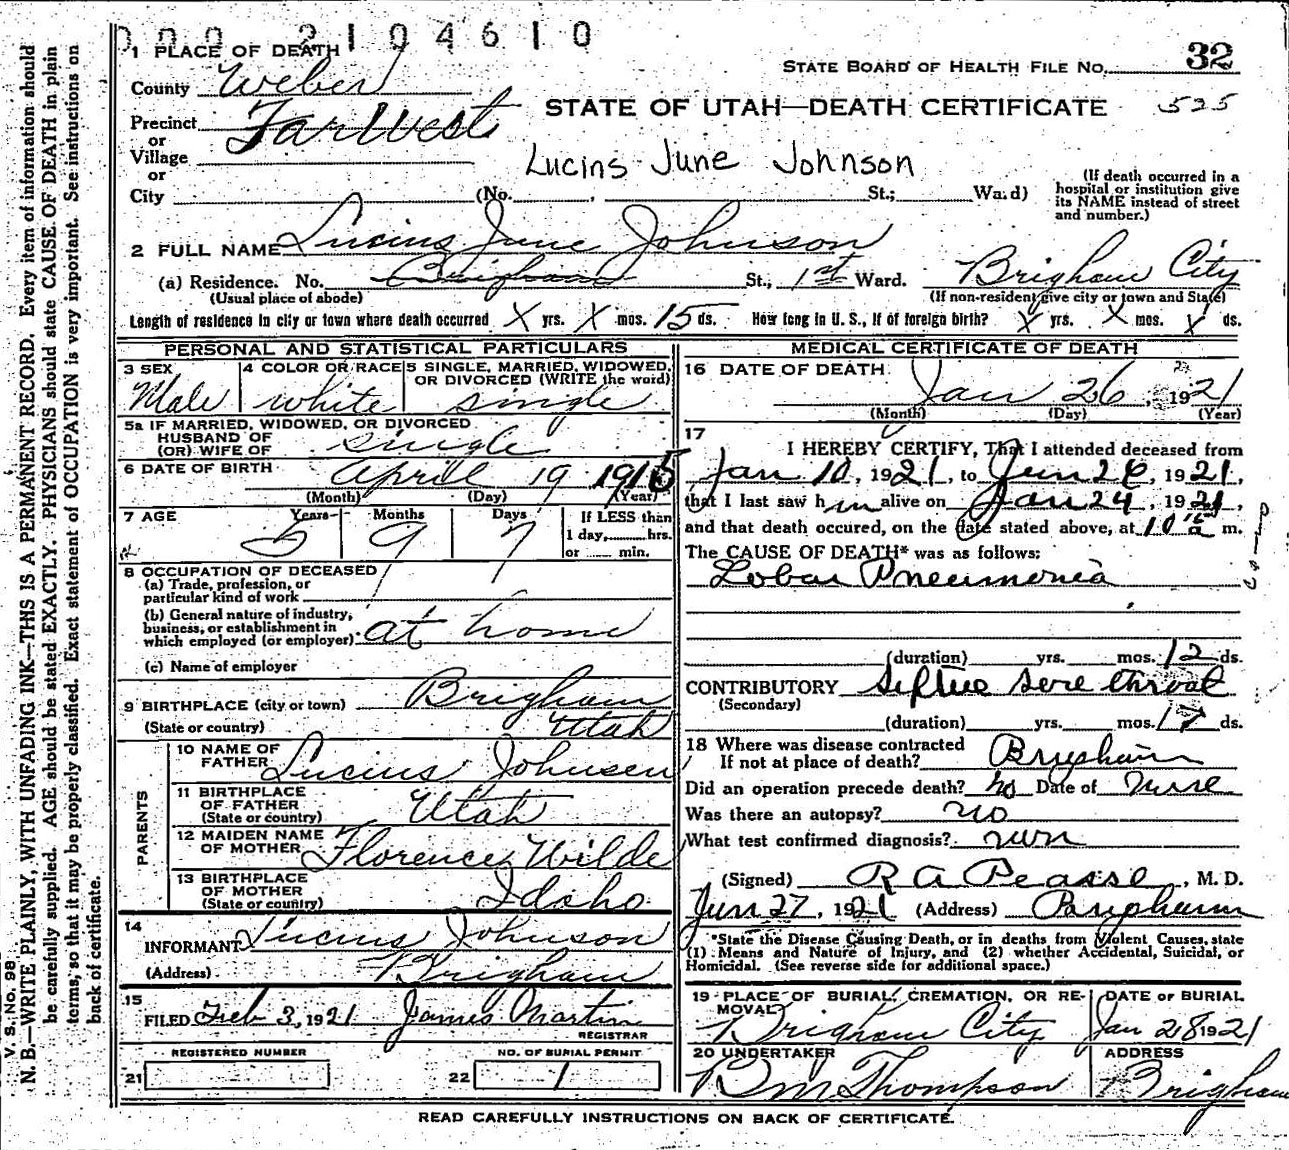 000 2104610
1 PLACE OF DEATH
County Weber
STATE BOARD OF HEALTH FILE NO. 32
STATE OF UTAH—DEATH CERTIFICATE 525
Precinct Far West
or
Village
or
Lucins June Johnson
City (No. , St.; Ward)
(If death occurred in a hospital or institution give its NAME instead of street and number.)
2 FULL NAME Lucius June Johnson
(a) Residence. No. Brigham St., 1st Ward. Brigham City
(Usual place of abode) (If non-resident give city or town and State)
Length of residence in city or town where death occurred X yrs. X mos. 15 ds. How long in U. S., if of foreign birth? X yrs. X mos. X ds.
PERSONAL AND STATISTICAL PARTICULARS
3 SEX Male
4 COLOR OR RACE white
5 SINGLE, MARRIED, WIDOWED, OR DIVORCED (WRITE the word) single
5a IF MARRIED, WIDOWED, OR DIVORCED
HUSBAND OF
(OR) WIFE OF single
6 DATE OF BIRTH April 19 1915
(Month) (Day) (Year)
7 AGE Years 5 Months 9 Days 7
If LESS than
1 day, hrs.
or min.
8 OCCUPATION OF DECEASED
(a) Trade, profession, or
particular kind of work
(b) General nature of industry,
business, or establishment in
which employed (or employer) at home
(c) Name of employer
9 BIRTHPLACE (city or town) Brigham
(State or country) Utah
PARENTS
10 NAME OF FATHER Lucius Johnsen
11 BIRTHPLACE OF FATHER (State or country) Utah
12 MAIDEN NAME OF MOTHER Florence Wilde
13 BIRTHPLACE OF MOTHER (State or country) Idaho
14
INFORMANT Lucius Johnson
(Address) Brigham
15
FILED Feb 3, 1921 James Martin
REGISTRAR
REGISTERED NUMBER
21
NO. OF BURIAL PERMIT
22 1
MEDICAL CERTIFICATE OF DEATH
16 DATE OF DEATH Jan 26, 1921
(Month) (Day) (Year)
17
I HEREBY CERTIFY, That I attended deceased from
Jan 10, 1921, to Jan 26, 1921,
that I last saw him alive on Jan 24, 1921,
and that death occured, on the date stated above, at 10 15 a m.
The CAUSE OF DEATH* was as follows:
Lobar Pneumonia
(duration) yrs. mos. 12 ds.
CONTRIBUTORY Septic sore throat
(Secondary)
(duration) yrs. mos. 17 ds.
18 Where was disease contracted
If not at place of death? Brigham
Did an operation precede death? no Date of
Was there an autopsy? no
What test confirmed diagnosis?
(Signed) R A Pearse, M. D.
Jan 27, 1921 (Address) Brigham
*State the Disease Causing Death, or in deaths from Violent Causes, state
(1) Means and Nature of Injury, and (2) whether Accidental, Suicidal, or
Homicidal. (See reverse side for additional space.)
19 PLACE OF BURIAL, CREMATION, OR REMOVAL Brigham City
DATE OF BURIAL Jan 28 1921
20 UNDERTAKER B M Thompson
ADDRESS Brigham
READ CAREFULLY INSTRUCTIONS ON BACK OF CERTIFICATE.
V. S. No. 98
N. B.—WRITE PLAINLY, WITH UNFADING INK—THIS IS A PERMANENT RECORD. Every item of information should
be carefully supplied. AGE should be stated EXACTLY. PHYSICIANS should state CAUSE OF DEATH in plain
terms, so that it may be properly classified. Exact statement of OCCUPATION is very important. See instructions on
back of certificate.